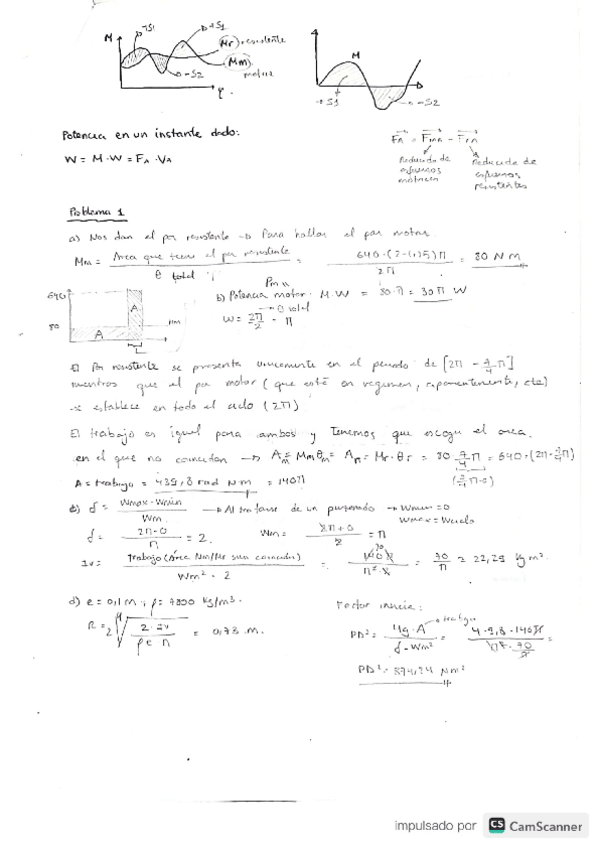 M
+S1
Mr → resistente
Mm motriz
-S2
φ
M
+S1
-S2
Potencia en un instante dado:
W = M·W = FA · VA
FA = FmA - FrA
Reducida de esfuerzos motrices
Reducida de esfuerzos resistentes
Problema 1
a) Nos dan el par resistente → Para hallar el par motor.
Mm = Area que tiene el par resistente / θ total = 640·(2-1,75)π / 2π = 80 N m
640
80
A
A
Mm
b) Potencia motor: M·W = 30π W
W = 2π/2 = π
Par resistente se presenta únicamente en el periodo de [2π - 7/4 π]
mientras que el par motor (que esté en regimen, etc)
se establece en todo el ciclo (2π)
El trabajo es igual para ambos y tenemos que escoger el area
en el que no coincidan → Am = Mm θm = Ar = Mr·θr = 80 7/4 π = 640·(2π-7/4π)
(7/4π-0)
A = trabajo = 439,8 rad N·m = 140π
δ = Wmax-Wmin / Wm → Al tratarse de un punzonado → Wmin = 0
Wmax = Wvuelo
δ = 2π-0 / π = 2. Wm = 2π+0 / 2 = π
Iv = trabajo (Área Mm/Mr sin coincidir) / Wm² · 2 = 140π / π²·2 = 70/π = 22,28 Kg m².
d) e = 0,1 m ; ρ = 7800 Kg/m³.
R = = 0,78 m.
Factor inercia:
PD² = 4g·A / δ·Wm² =
trabajo
PD² = 874,24 Nm²
impulsado por CS CamScanner